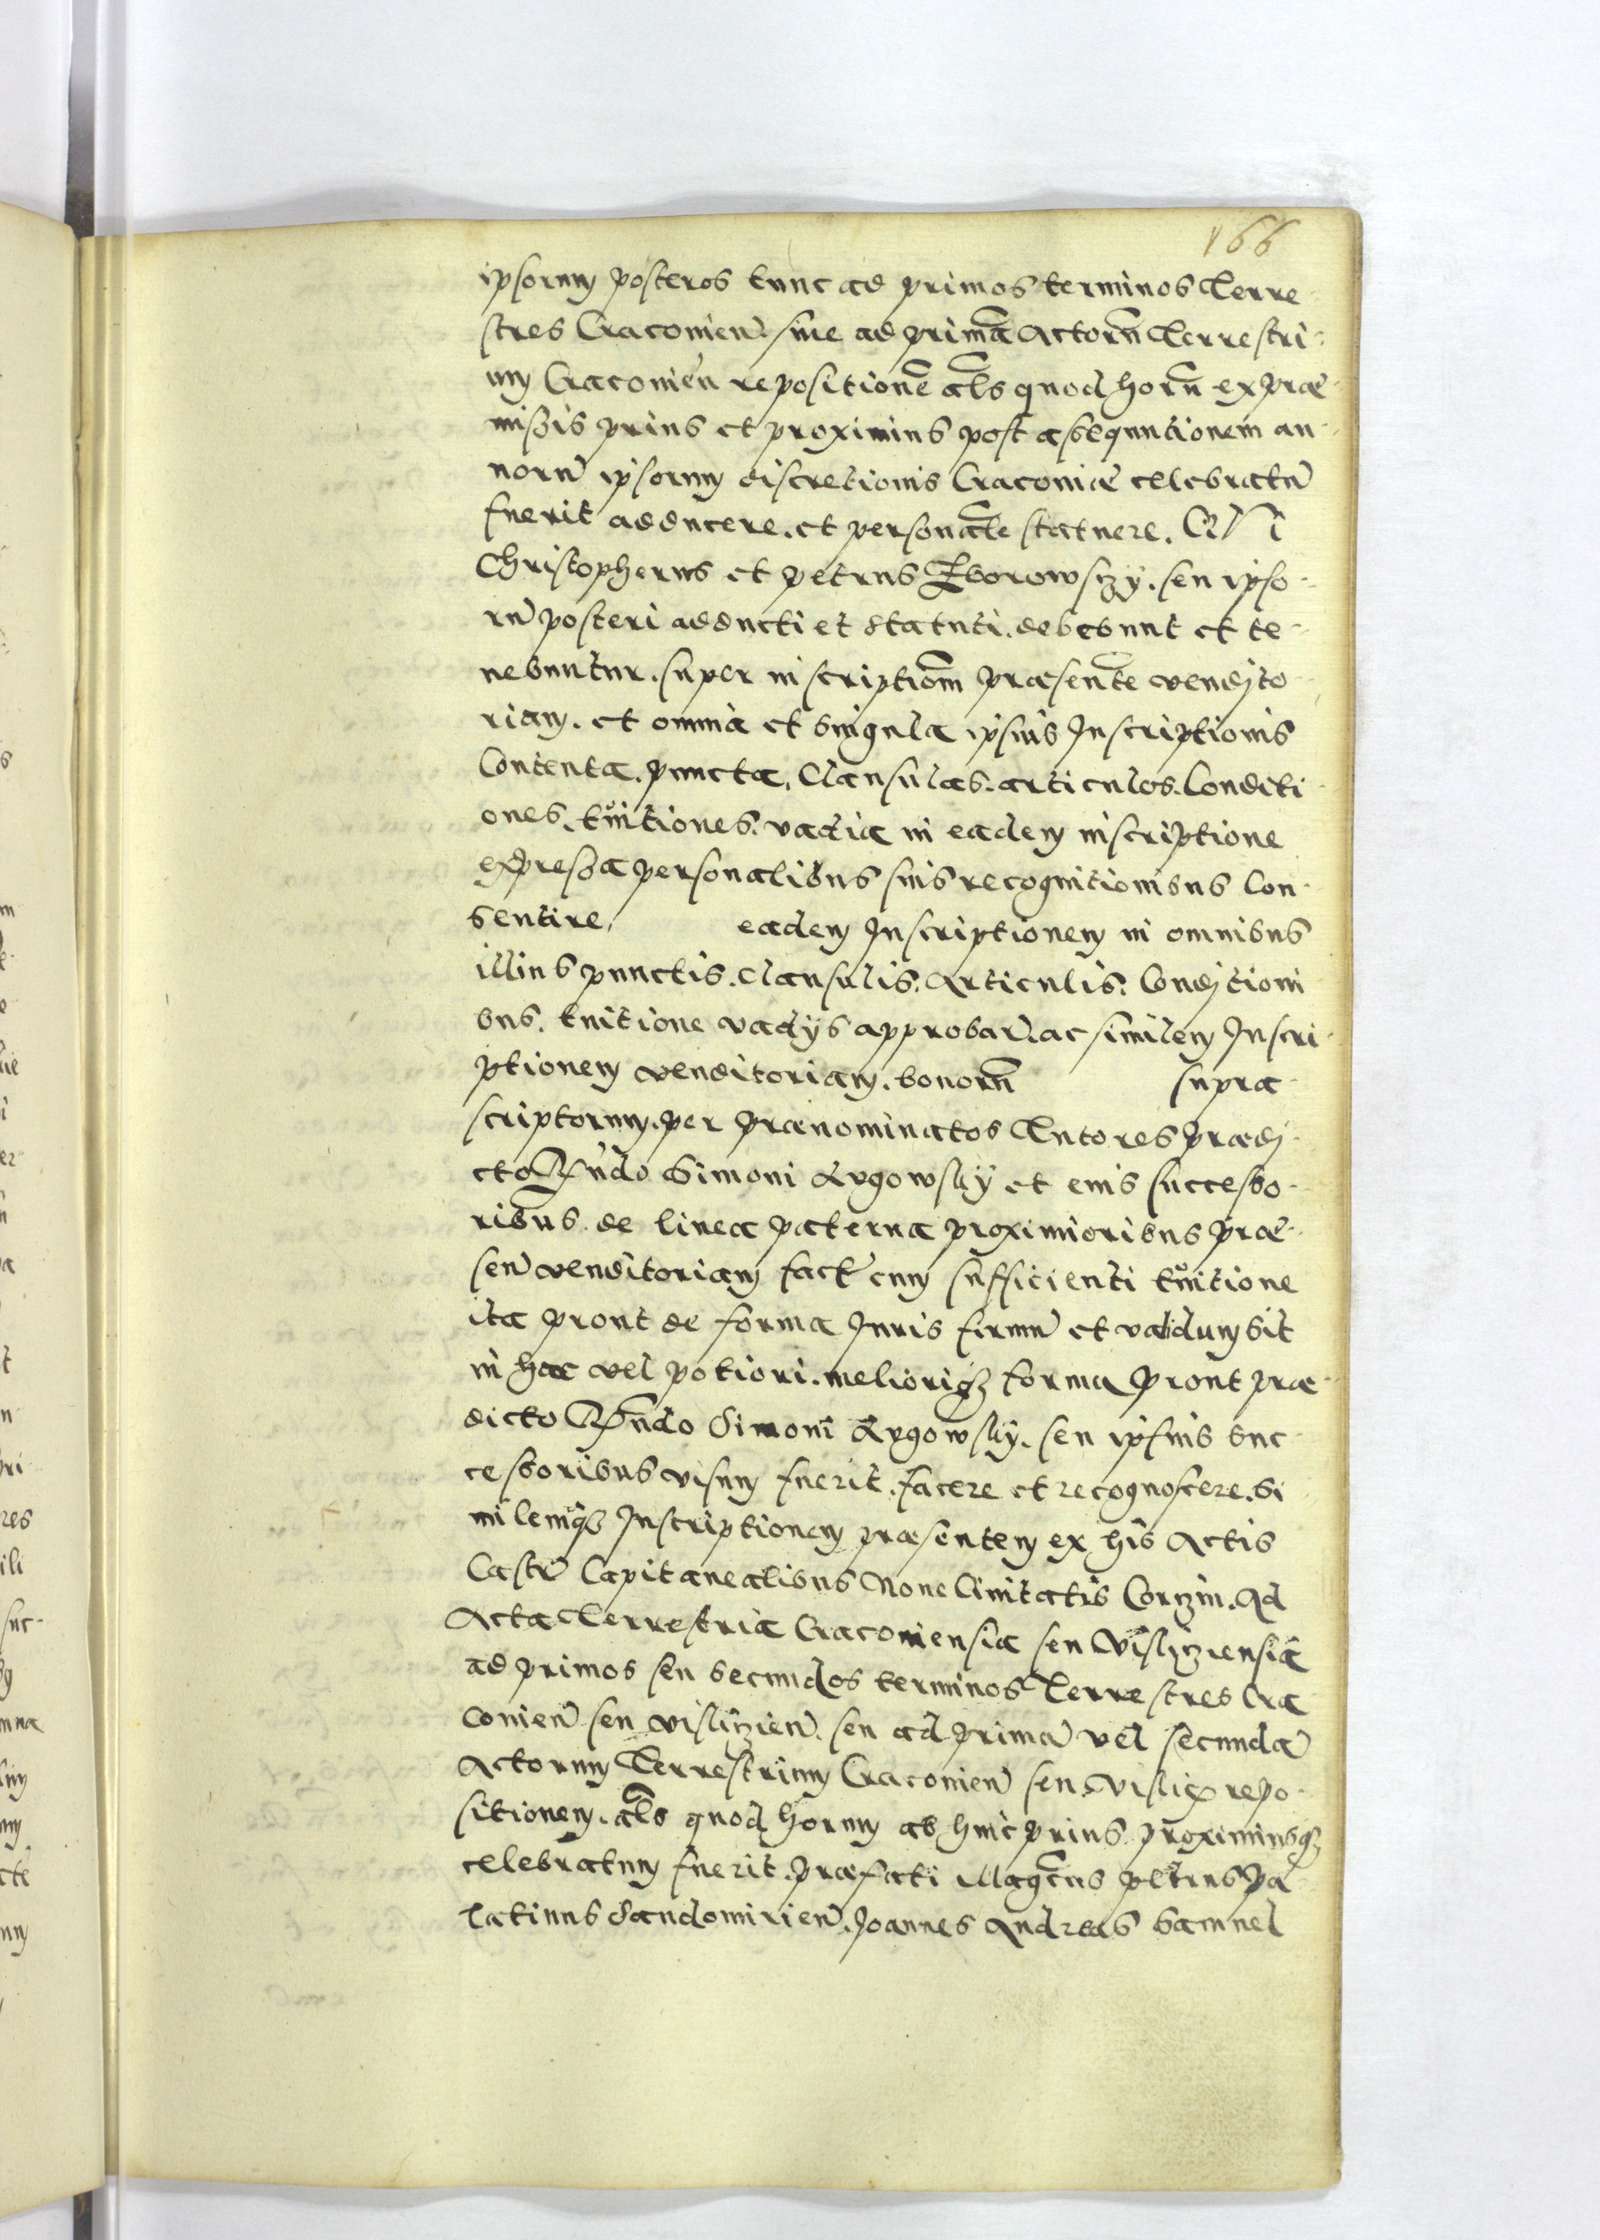 166
ipsorum posteros tunc ad primos terminos Terre
stres Cracovien̄. siue ad primā Actorū Terrestri
um Cracovien̄ repositionē al̄s quod horū ex præ
mißis prius et proximius post assequutionem an
norū ipsorum discretionis Cracoviæ celebratū
fuerit adducere. et personal̄r statuere. QVI
Christopherus et Petrus Zborowsczÿ. seu ipso
rū posteri adducti et statuti. debebunt et te
nebuntur. super inscriptiom̄ præsentē vendito
riam. et omnia et singula ipsius Inscriptionis
Contenta. puncta. Clausulas. articulos. Conditi
ones. tuitiones. vadia in eadem inscriptione
expressa personalibus suis recognitionibus Con
sentire. eadem Inscriptionem in omnibus
illius punctis. Clausulis. Articulis. Conditioni
bus. tuitione vadÿs approbar̄. ac similem Inscri
ptionem venditoriam. bonorū supra
scriptorum. per prænominatos Autores prædi
cto R̄ndo Simoni Ługowskÿ et eius successo
ribus de linea paterna proximioribus præ
sen̄ venditoriam fact̄ cum sufficienti tuitione
ita prout de forma Iuris firmū et validum sit
in hac vel potiori. meliorique forma prout præ
dicto R̄ndo Simoni Ługowskÿ. seu ipsius suc
cessoribus visum fuerit. facere et recognoscere. Si
milemque Inscriptionem præsentem ex his Actis
Castr̄ Capitanealibus Noue Ciuitatis Corczin. Ad
Acta Terrestria Cracoviensia seu Visliciensia
ad primos seu secundos terminos Terrestres Cra
covien̄ seu Vislicien̄. seu ad primā vel secundā
Actorum Terrestrium Cracovien̄ seu Vislicien̄ repo
sitionem. al̄s quod horum ab hinc prius proximiusque
celebratum fuerit. præfati Magc̄us Petrus Pa
latinus Sandomirien̄. Joannes Andreas Samuel